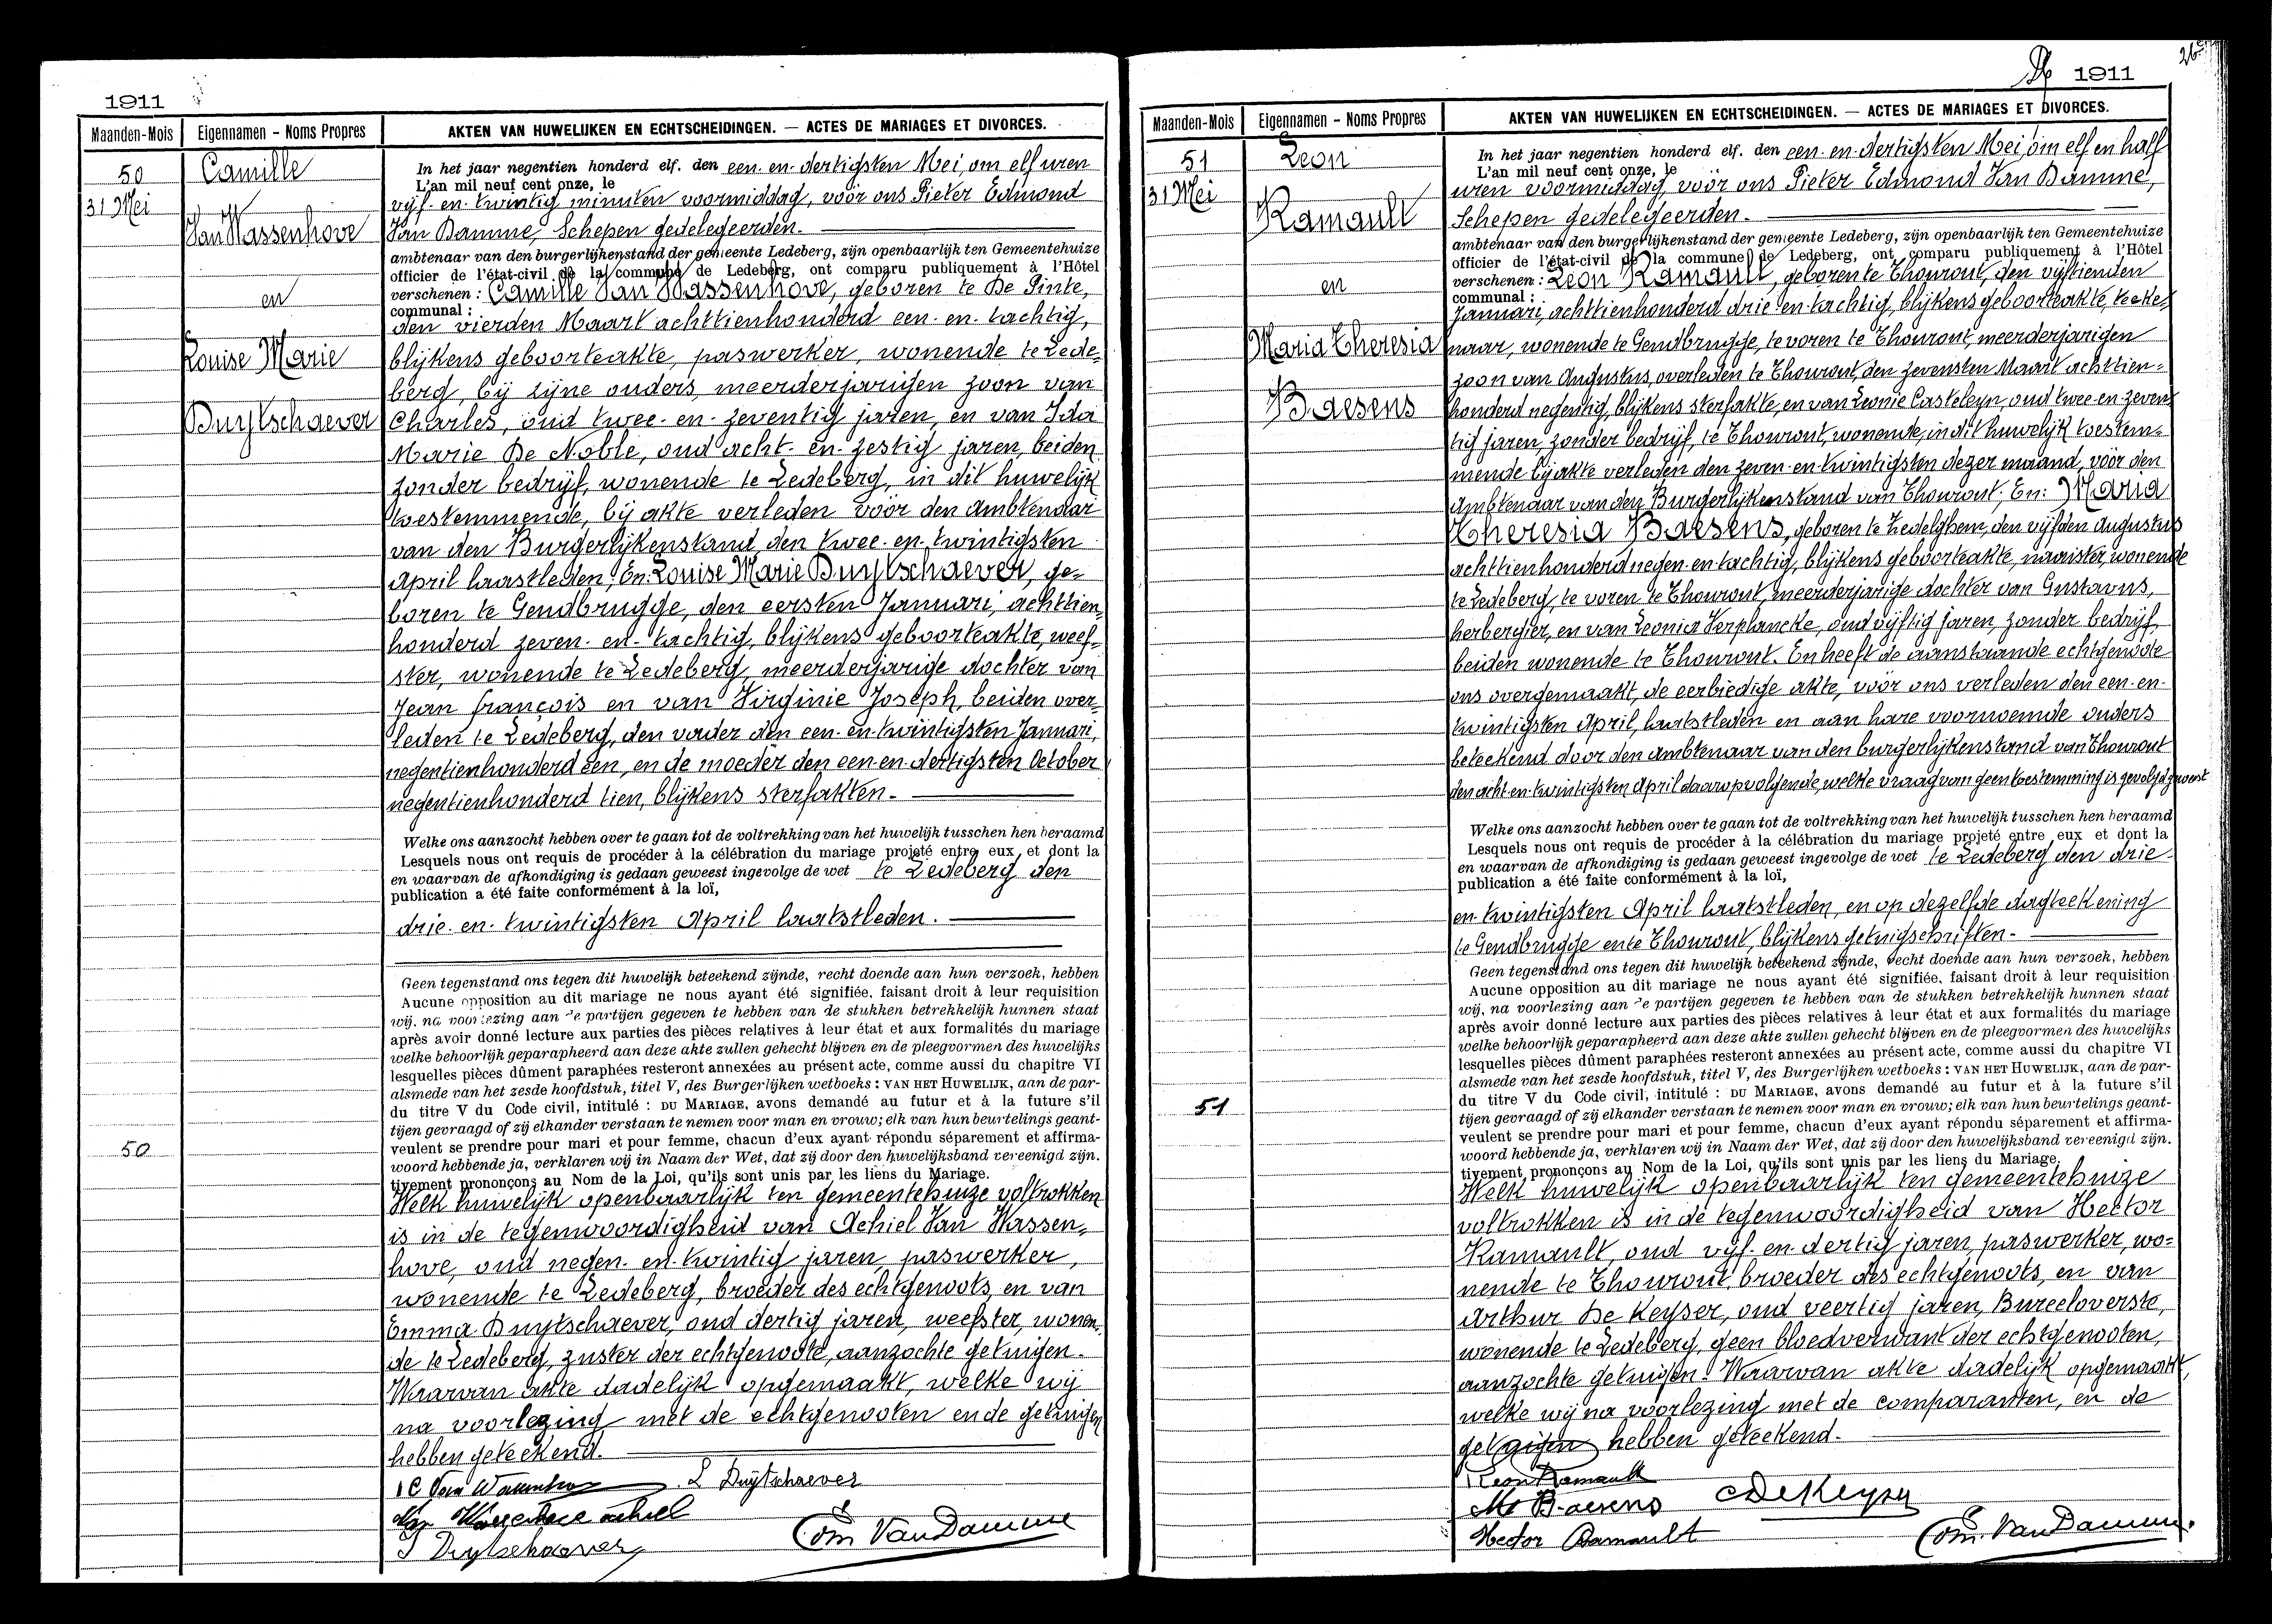 1911
Maanden-Mois
Eigennamen - Noms Propres
AKTEN VAN HUWELIJKEN EN ECHTSCHEIDINGEN. — ACTES DE MARIAGES ET DIVORCES.
50
31 Mei
Camille
Van Wassenhove
en
Louise Marie
Duytschaever
In het jaar negentien honderd elf. den een-en-dertigsten Mei, om elf uren
L'an mil neuf cent onze, le
vijf-en-twintig minuten voormiddag, vóór ons Pieter Edmond
Van Damme, Schepen gedelegeerden.
ambtenaar van den burgerlijkenstand der gemeente Ledeberg, zijn openbaarlijk ten Gemeentehuize
officier de l'état-civil de la commune de Ledeberg, ont comparu publiquement à l'Hôtel
verschenen : Camille Van Wassenhove, geboren te De Pinte,
communal :
den vierden Maart achttienhonderd een-en-tachtig,
blijkens geboorteakte, paswerker, wonende te Lede=
berg, bij zijne ouders, meerderjarigen zoon van
Charles, oud twee-en-zeventig jaren, en van Ida
Marie De Noble, oud acht-en-zestig jaren, beiden
zonder bedrijf, wonende te Ledeberg, in dit huwelijk
toestemmende, bij akte verleden vóór den Ambtenaar
van den Burgerlijkenstand den twee-en-twintigsten
April laastleden. En: Louise Marie Duytschaever, ge=
boren te Gendbrugge, den eersten Januari, achttien=
honderd zeven-en-tachtig, blijkens geboorteakte, weef=
ster, wonende te Ledeberg, meerderjarige dochter van
Jean François en van Virginie Joseph, beiden over=
leden te Ledeberg, den vader den een-en-twintigsten Januari,
negentienhonderd een, en de moeder den een-en-dertigsten October
negentienhonderd tien, blijkens sterfakten.
Welke ons aanzocht hebben over te gaan tot de voltrekking van het huwelijk tusschen hen beraamd
Lesquels nous ont requis de procéder à la célébration du mariage projeté entre eux et dont la
en waarvan de afkondiging is gedaan geweest ingevolge de wet te Ledeberg den
publication a été faite conformément à la loï,
drie-en-twintigsten April laatstleden.
Geen tegenstand ons tegen dit huwelijk beteekend zijnde, recht doende aan hun verzoek, hebben
Aucune opposition au dit mariage ne nous ayant été signifiée, faisant droit à leur requisition
wij, na voorlezing aan de partijen gegeven te hebben van de stukken betrekkelijk hunnen staat
après avoir donné lecture aux parties des pièces relatives à leur état et aux formalités du mariage
welke behoorlijk geparapheerd aan deze akte zullen gehecht blijven en de pleegvormen des huwelijks
lesquelles pièces dûment paraphées resteront annexées au présent acte, comme aussi du chapitre VI
alsmede van het zesde hoofdstuk, titel V, des Burgerlijken wetboeks : VAN HET HUWELIJK, aan de par-
du titre V du Code civil, intitulé : DU MARIAGE, avons demandé au futur et à la future s'il
tijen gevraagd of zij elkander verstaan te nemen voor man en vrouw; elk van hun beurtelings geant-
veulent se prendre pour mari et pour femme, chacun d'eux ayant répondu séparement et affirma-
woord hebbende ja, verklaren wij in Naam der Wet, dat zij door den huwelijksband vereenigd zijn.
tivement prononçons au Nom de la Loi, qu'ils sont unis par les liens du Mariage.
50
Welk huwelijk openbaarlijk ten gemeentehuize voltrokken
is in de tegenwoordigheid van Achiel Van Wassen=
hove, oud negen-en-twintig jaren, paswerker,
wonende te Ledeberg, broeder des echtgenoots, en van
Emma Duytschaever, oud dertig jaren, weefster, wonen=
de te Ledeberg, zuster der echtgenoote, aanzochte getuigen.
Waarvan akte dadelijk opgemaakt, welke wij
na voorlezing met de echtgenooten en de getuigen
hebben geteekend.
L Duytschaever
Duytschaever
Edm. Van Damme
26e
1911
Maanden-Mois
Eigennamen - Noms Propres
AKTEN VAN HUWELIJKEN EN ECHTSCHEIDINGEN. — ACTES DE MARIAGES ET DIVORCES.
51
31 Mei
Leon
Ramault
en
Maria Theresia
Baesens
In het jaar negentien honderd elf. den een-en-dertigsten Mei, om elf en half
L'an mil neuf cent onze, le
uren voormiddag, vóór ons Pieter Edmond Van Damme,
Schepen gedelegeerden.
ambtenaar van den burgerlijkenstand der gemeente Ledeberg, zijn openbaarlijk ten Gemeentehuize
officier de l'état-civil de la commune de Ledeberg, ont comparu publiquement à l'Hôtel
verschenen : Leon Ramault, geboren te Thourout, den vijftienden
communal :
Januari, achttienhonderd drie-en-tachtig, blijkens geboorteakte, teeke=
naar, wonende te Gendbrugge, te voren te Thourout, meerderjarigen
zoon van Augustus, overleden te Thourout, den zevensten Maart achttien=
honderd negentig, blijkens sterfakte, en van Leonie Casteleyn, oud twee-en-zeven=
tig jaren, zonder bedrijf, te Thourout, wonende, in dit huwelijk toestem=
mende bij akte verleden den zeven-en-twintigsten dezer maand, vóór den
Ambtenaar van den Burgerlijkenstand van Thourout. En: Maria
Theresia Baesens, geboren te Zedelghem, den vijfden Augustus
achttienhonderd negen-en-tachtig, blijkens geboorteakte, naaister, wonende
te Ledeberg, te voren te Thourout, meerderjarige dochter van Gustavus,
herbergier, en van Leonia Verplancke, oud vijftig jaren, zonder bedrijf,
beiden wonende te Thourout. En heeft de aanstaande echtgenoote
ons overgemaakt, de eerbiedige akte, vóór ons verleden den een-en-
twintigsten April, laatstleden en aan hare voornoemde ouders
beteekend door den ambtenaar van den burgerlijkenstand van Thourout
den acht-en-twintigsten April daaropvolgende, welke vraag van geen toestemming is gevolgd geweest
Welke ons aanzocht hebben over te gaan tot de voltrekking van het huwelijk tusschen hen beraamd
Lesquels nous ont requis de procéder à la célébration du mariage projeté entre eux et dont la
en waarvan de afkondiging is gedaan geweest ingevolge de wet te Ledeberg den drie-
publication a été faite conformément à la loï,
en-twintigsten April laatstleden, en op dezelfde dagteekening
te Gendbrugge en te Thourout, blijkens getuigschriften.
Geen tegenstand ons tegen dit huwelijk beteekend zijnde, recht doende aan hun verzoek, hebben
Aucune opposition au dit mariage ne nous ayant été signifiée, faisant droit à leur requisition
wij, na voorlezing aan de partijen gegeven te hebben van de stukken betrekkelijk hunnen staat
après avoir donné lecture aux parties des pièces relatives à leur état et aux formalités du mariage
welke behoorlijk geparapheerd aan deze akte zullen gehecht blijven en de pleegvormen des huwelijks
lesquelles pièces dûment paraphées resteront annexées au présent acte, comme aussi du chapitre VI
alsmede van het zesde hoofdstuk, titel V, des Burgerlijken wetboeks : VAN HET HUWELIJK, aan de par-
du titre V du Code civil, intitulé : DU MARIAGE, avons demandé au futur et à la future s'il
tijen gevraagd of zij elkander verstaan te nemen voor man en vrouw; elk van hun beurtelings geant-
veulent se prendre pour mari et pour femme, chacun d'eux ayant répondu séparement et affirma-
woord hebbende ja, verklaren wij in Naam der Wet, dat zij door den huwelijksband vereenigd zijn.
tivement prononçons au Nom de la Loi, qu'ils sont unis par les liens du Mariage.
51
Welk huwelijk openbaarlijk ten gemeentehuize
voltrokken is in de tegenwoordigheid van Hector
Ramault, oud vijf-en-dertig jaren, paswerker, wo=
nende te Thourout, broeder des echtgenoots, en van
Arthur De Keyser, oud veertig jaren, Bureeloverste,
wonende te Ledeberg, geen bloedverwant der echtgenooten,
aanzochte getuigen. Waarvan akte dadelijk opgemaakt,
welke wij na voorlezing met de comparanten, en de
getuigen hebben geteekend.
Leon Ramault
M Baesens
De Keyser
Hector Ramault
Edm. Van Damme.